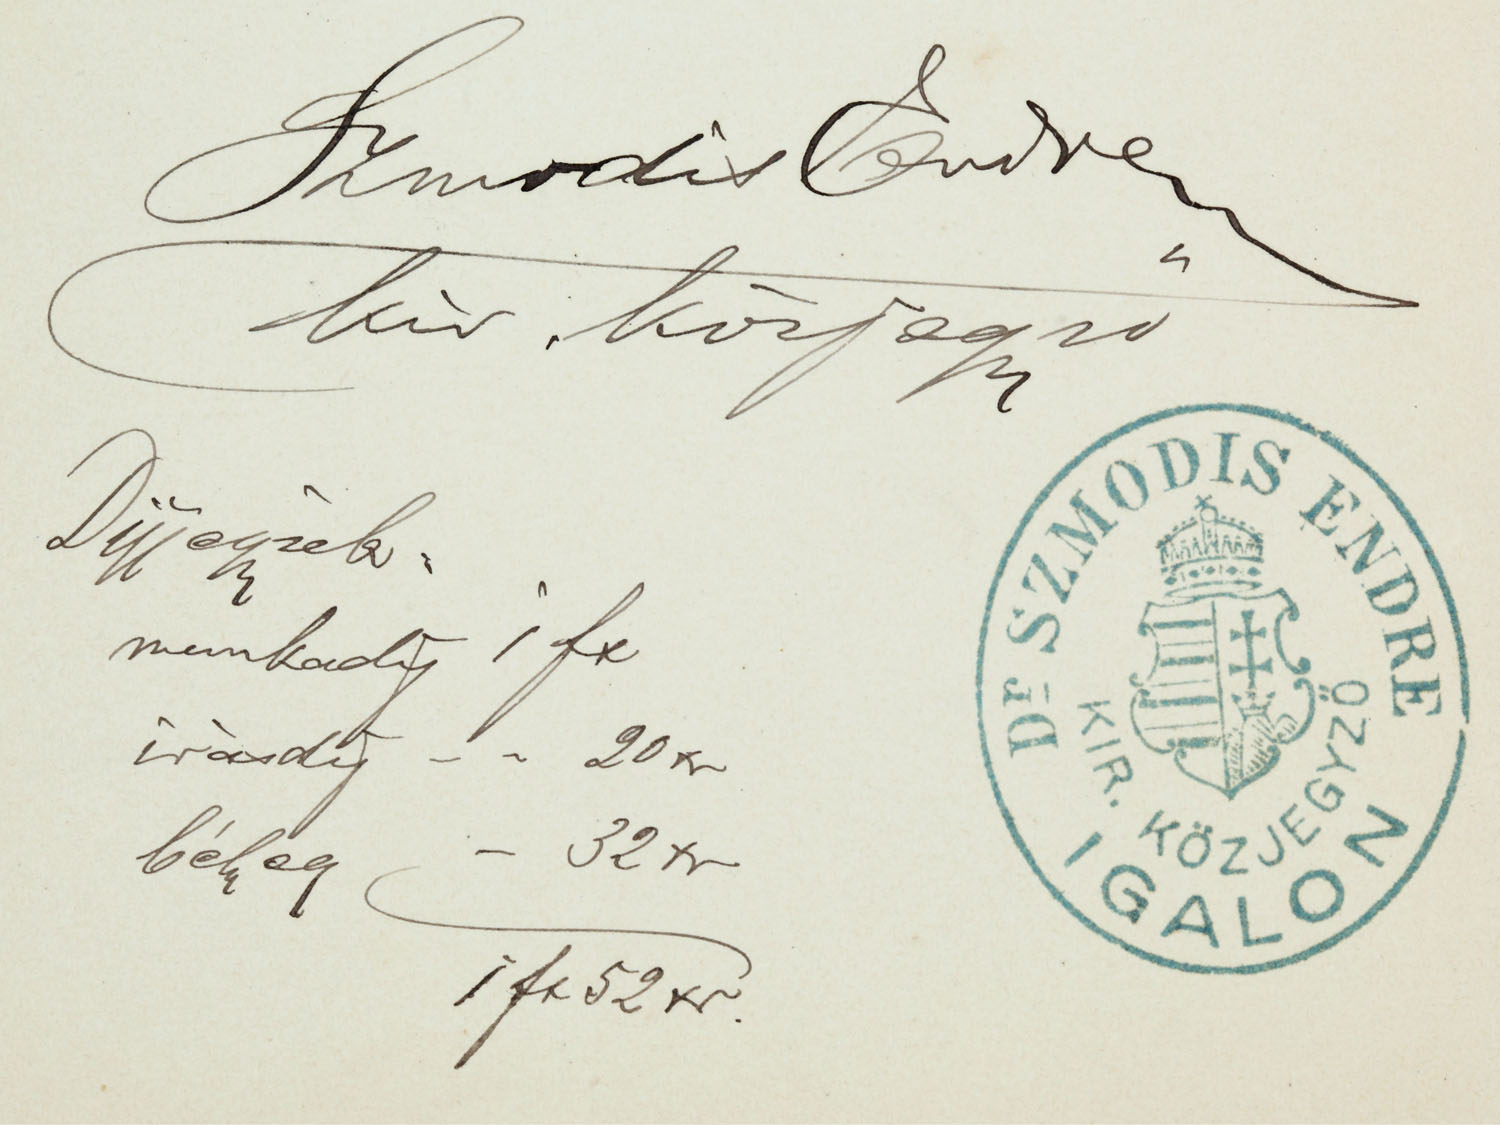 Szmodis Endre
kir. közjegyző
Díjjegyzék.
munkadíj 1 ft
írásdíj - - 20 kr
bélyeg - 32 kr
1 ft 52 kr.
Dr SZMODIS ENDRE
KIR. KÖZJEGYZŐ
IGALON